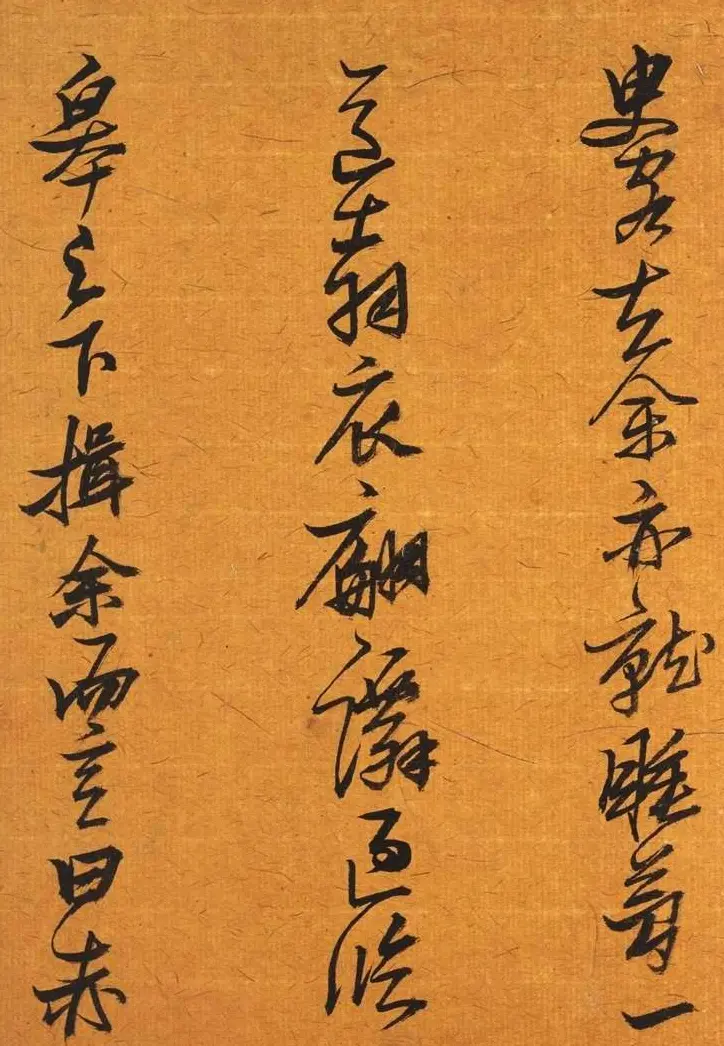 臾客去余亦就睡梦一
道士羽衣翩僊过临
皋之下揖余而言曰赤